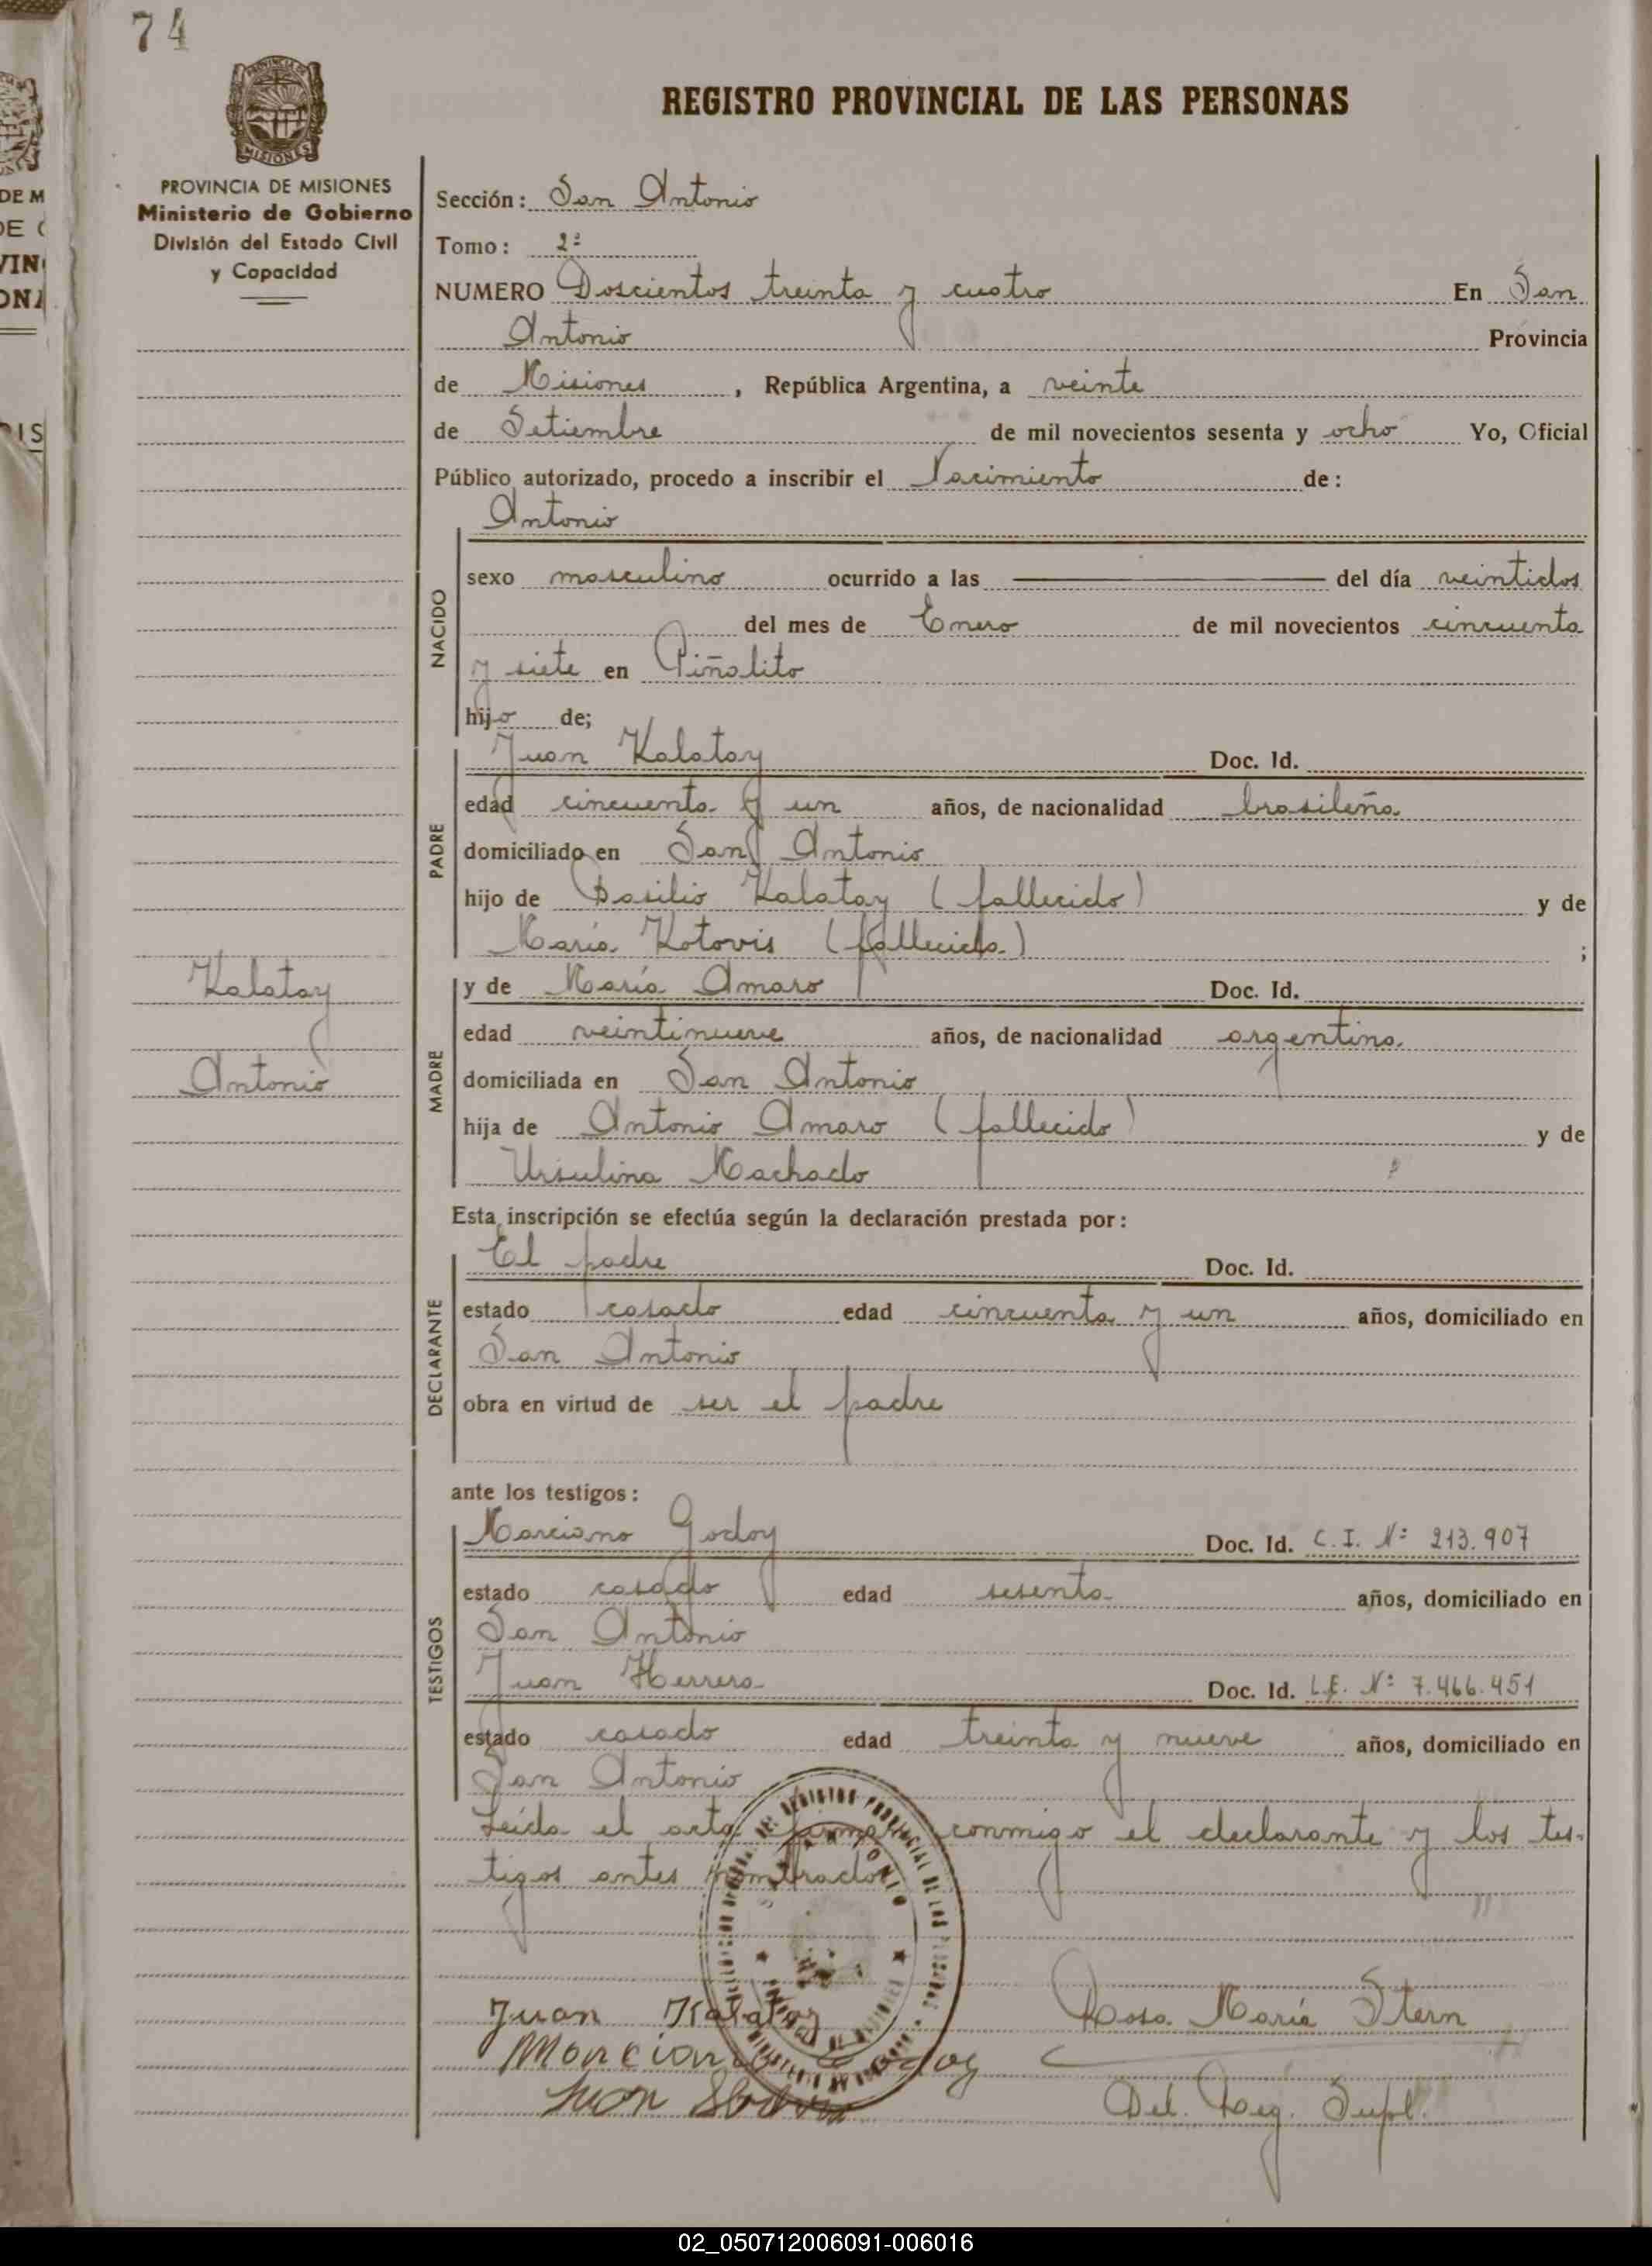 74
PROVINCIA DE MISIONES
Ministerio de Gobierno
División del Estado Civil
y Capacidad
REGISTRO PROVINCIAL DE LAS PERSONAS
Sección: San Antonio
Tomo: 2º
NUMERO Doscientos treinta y cuatro En San
Antonio Provincia
de Misiones, República Argentina, a veinte
de Setiembre de mil novecientos sesenta y ocho Yo, Oficial
Público autorizado, procedo a inscribir el Nacimiento de:
Antonio
NACIDO
sexo masculino ocurrido a las ——— del día veintidos
del mes de Enero de mil novecientos cincuenta
y siete en Piñalito
hijo de;
PADRE
Juan Kalatay Doc. Id.
edad cincuenta y un años, de nacionalidad brasileña
domiciliado en San Antonio
hijo de Basilio Kalatay (fallecido) y de
María Kotovis (fallecida) ;
Kalatay
Antonio
MADRE
y de María Amaro Doc. Id.
edad veintinueve años, de nacionalidad argentina
domiciliada en San Antonio
hija de Antonio Amaro (fallecido) y de
Ursulina Machado
Esta inscripción se efectúa según la declaración prestada por:
DECLARANTE
El padre Doc. Id.
estado casado edad cincuenta y un años, domiciliado en
San Antonio
obra en virtud de ser el padre
ante los testigos:
TESTIGOS
Marciano Godoy Doc. Id. C.I. Nº 213.907
estado casado edad sesenta años, domiciliado en
San Antonio
Juan Herrera Doc. Id. L.E. Nº 7.466.451
estado casado edad treinta y nueve años, domiciliado en
San Antonio
Leída el acta firman conmigo el declarante y los tes-
tigos antes nombrados
Juan Kalatay
Rosa María Stern
Marciano Godoy
Juan
Del. Reg. Supl.
02_050712006091-006016